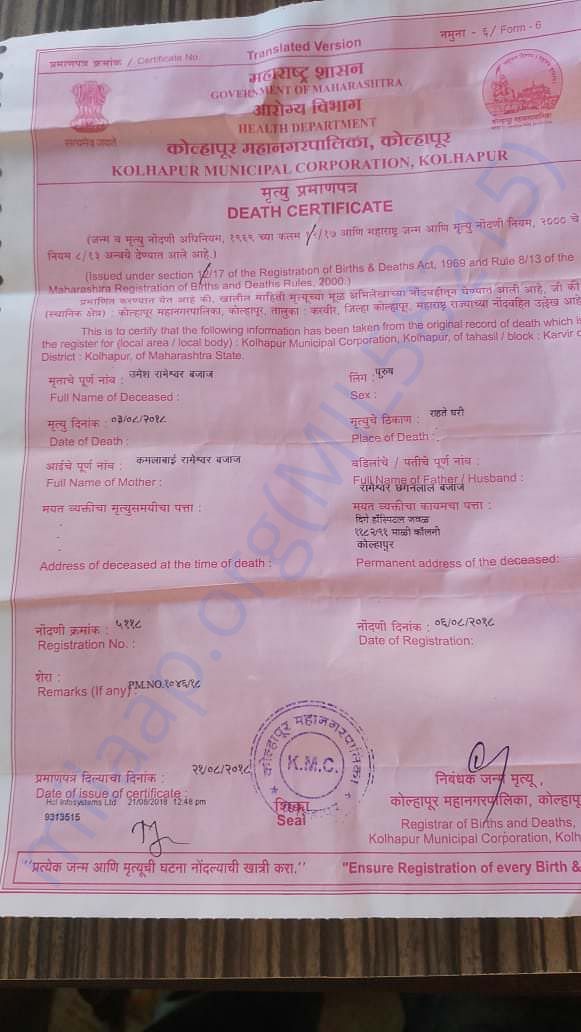 प्रमाणपत्र क्रमांक / Certificate No.
Translated Version
नमुना - ६/ Form - 6
महाराष्ट्र शासन
GOVERNMENT OF MAHARASHTRA
आरोग्य विभाग
HEALTH DEPARTMENT
कोल्हापूर महानगरपालिका, कोल्हापूर
KOLHAPUR MUNICIPAL CORPORATION, KOLHAPUR
सत्यमेव जयते
मृत्यु प्रमाणपत्र
DEATH CERTIFICATE
(जन्म व मृत्यु नोंदणी अधिनियम, १९६९ च्या कलम /१७ आणि महाराष्ट्र जन्म आणि मृत्यु नोंदणी नियम, २००० चे
नियम ८/१३ अन्वये देण्यात आले आहे.)
(Issued under section 12/17 of the Registration of Births & Deaths Act, 1969 and Rule 8/13 of the
Maharashtra Registration of Births and Deaths Rules, 2000.)
प्रमाणित करण्यात येत आहे की, खालील माहिती मृत्यूच्या मूळ अभिलेखाच्या नोंदवहीतून घेण्यात आली आहे, जी की
(स्थानिक क्षेत्र) : कोल्हापूर महानगरपालिका, कोल्हापूर, तालुका : करवीर, जिल्हा कोल्हापूर, महाराष्ट्र राज्याच्या नोंदवहित उल्लेख आहे
This is to certify that the following information has been taken from the original record of death which is
the register for (local area / local body) : Kolhapur Municipal Corporation, Kolhapur, of tahasil / block : Karvir
District : Kolhapur, of Maharashtra State.
मृताचे पूर्ण नांव : उमेश रामेश्वर बजाज
लिंग : पुरुष
Full Name of Deceased :
Sex :
मृत्यु दिनांक : ०३/०८/२०१८
मृत्युचे ठिकाण : राहते घरी
Date of Death :
Place of Death :
आईचे पूर्ण नांव : कमलाबाई रामेश्वर बजाज
वडिलांचे / पतीचे पूर्ण नांव :
Full Name of Mother :
Full Name of Father / Husband :
रामेश्वर छगनलाल बजाज
मयत व्यक्तीचा मृत्युसमयीचा पत्ता :
मयत व्यक्तीचा कायमचा पत्ता :
दिगे हॉस्पिटल जवळ
११८२/११ माळी कॉलनी
कोल्हापूर
Address of deceased at the time of death :
Permanent address of the deceased:
नोंदणी क्रमांक : ५११८
नोंदणी दिनांक : ०६/०८/२०१८
Registration No. :
Date of Registration:
शेरा :
Remarks (If any) : P.M.NO.१०४६/१८
प्रमाणपत्र दिल्याचा दिनांक : २१/०८/२०१८
Date of issue of certificate :
Hcl Infosystems Ltd 21/08/2018 12:48 pm
9313515
कोल्हापूर महानगरपालिका
K.M.C.
शिक्का
Seal
निबंधक जन्म मृत्यू,
कोल्हापूर महानगरपालिका,
Registrar of Births and Deaths,
Kolhapur Municipal Corporation,
"प्रत्येक जन्म आणि मृत्यूची घटना नोंदल्याची खात्री करा."
"Ensure Registration of every Birth &
milaap.org(MIL55215)